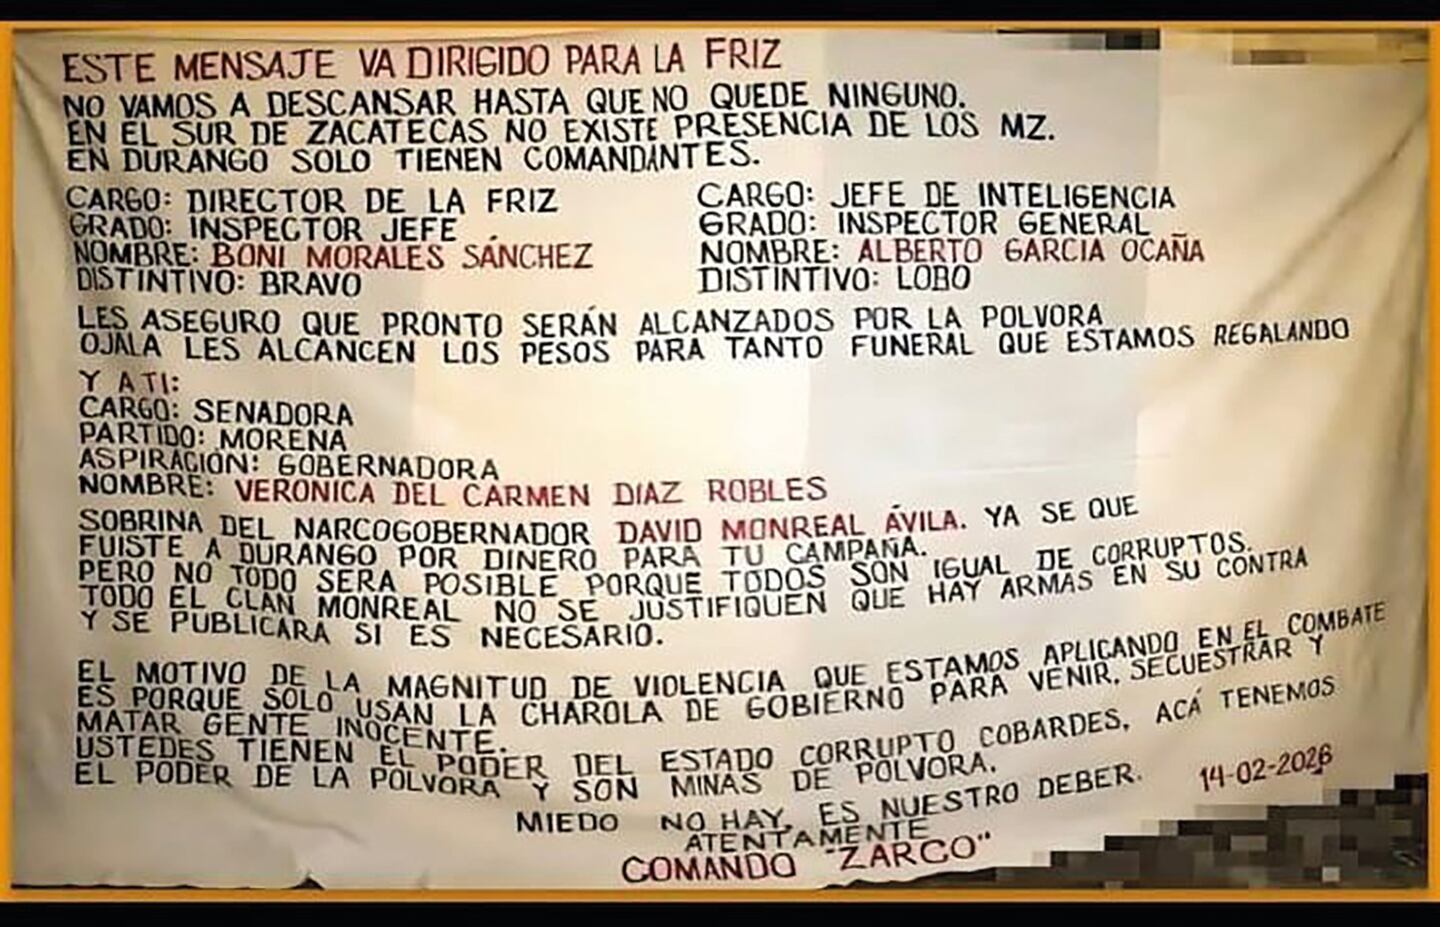 ESTE MENSAJE VA DIRIGIDO PARA LA FRIZ
NO VAMOS A DESCANSAR HASTA QUE NO QUEDE NINGUNO.
EN EL SUR DE ZACATECAS NO EXISTE PRESENCIA DE LOS MZ.
EN DURANGO SOLO TIENEN COMANDANTES.
CARGO: DIRECTOR DE LA FRIZ
GRADO: INSPECTOR JEFE
NOMBRE: BONI MORALES SÁNCHEZ
DISTINTIVO: BRAVO
CARGO: JEFE DE INTELIGENCIA
GRADO: INSPECTOR GENERAL
NOMBRE: ALBERTO GARCIA OCAÑA
DISTINTIVO: LOBO
LES ASEGURO QUE PRONTO SERÁN ALCANZADOS POR LA POLVORA
OJALA LES ALCANCEN LOS PESOS PARA TANTO FUNERAL QUE ESTAMOS REGALANDO
Y A TI:
CARGO: SENADORA
PARTIDO: MORENA
ASPIRACIÓN: GOBERNADORA
NOMBRE: VERONICA DEL CARMEN DIAZ ROBLES
SOBRINA DEL NARCOGOBERNADOR DAVID MONREAL ÁVILA. YA SE QUE
FUISTE A DURANGO POR DINERO PARA TU CAMPAÑA.
PERO NO TODO SERA POSIBLE PORQUE TODOS SON IGUAL DE CORRUPTOS.
TODO EL CLAN MONREAL NO SE JUSTIFIQUEN QUE HAY ARMAS EN SU CONTRA
Y SE PUBLICARA SI ES NECESARIO.
EL MOTIVO DE LA MAGNITUD DE VIOLENCIA QUE ESTAMOS APLICANDO EN EL COMBATE
ES PORQUE SOLO USAN LA CHAROLA DE GOBIERNO PARA VENIR, SECUESTRAR Y
MATAR GENTE INOCENTE.
USTEDES TIENEN EL PODER DEL ESTADO CORRUPTO COBARDES, ACÁ TENEMOS
EL PODER DE LA POLVORA Y SON MINAS DE POLVORA.
14-02-2026
MIEDO NO HAY, ES NUESTRO DEBER.
ATENTAMENTE
COMANDO "ZARCO"